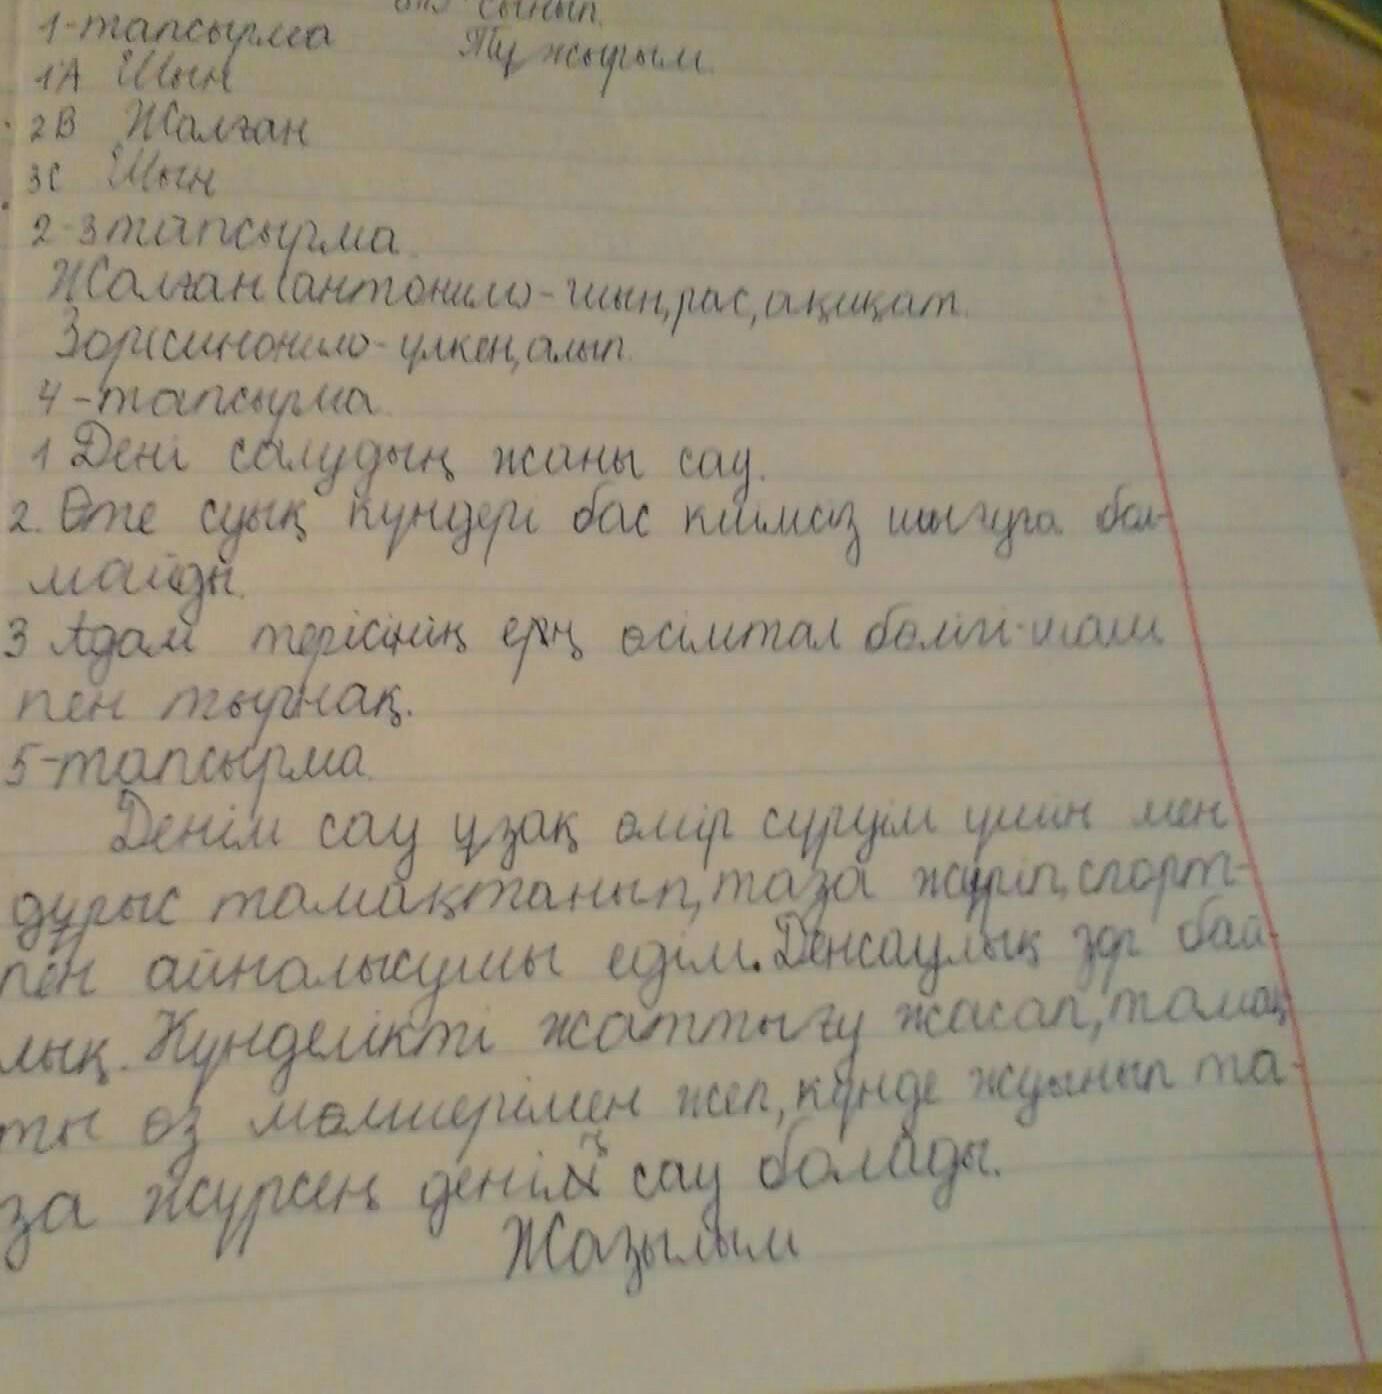 сынып.
1-тапсырма Тұжырым.
1А Шын
2В Жалған
3С Шын
2-3тапсырма.
Жалған(антоним)-шын,рас,ақиқат.
Зор(синоним)-үлкен,алып.
4-тапсырма.
1 Дені салудың жаны сау.
2. Өте суық күндері бас киімсіз шығуға бол-
майды.
3 Адам терісінің ең өсімтал бөлігі-шаш
пен тырнақ.
5-тапсырма.
Денім сау ұзақ өмір сүруім үшін мен
дұрыс тамақтанып,таза жүріп,спорт-
пен айналысушы едім.Денсаулық зор бай-
лық. Күнделікті жаттығу жасап,тамақ
ты өз мөлшерімен жеп,күнде жуынып та-
за жүрсең денің сау болады.
Жазылым